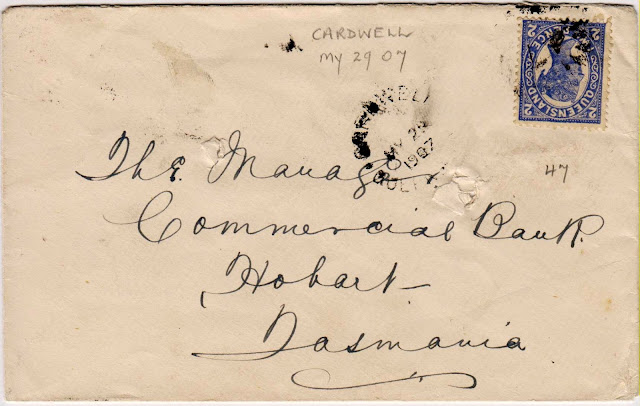 CARDWELL
MY 29 07
QUEENSLAND
2 2
PENCE
1907
47
The Manager
Commercial Bank.
Hobart
Tasmania